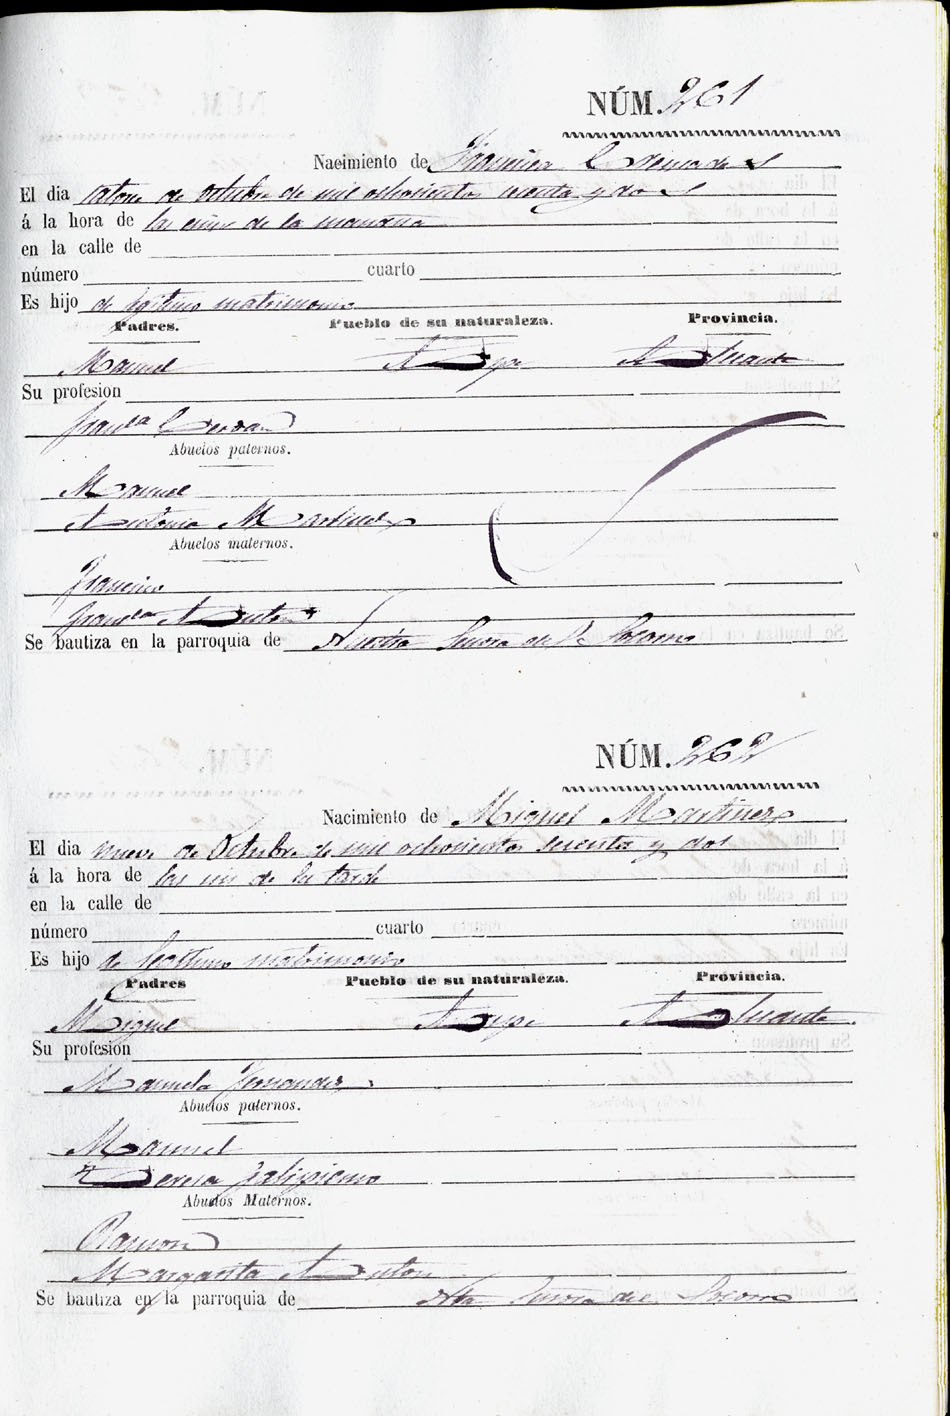 NÚM. 261
Nacimiento de
El dia catorse de Octubre de mil ochocientos secenta y dos
á la hora de las cinco de la mañana
en la calle de
número cuarto
Es hijo de legitimo matrimonio
Padres. Pueblo de su naturaleza. Provincia.
Manuel Aspe Alicante
Su profesion
Fran.ca Cerdan
Abuelos paternos.
Manuel
Antonia Martinez
Abuelos maternos.
Francisco
Fran.ca Anton
Se bautiza en la parroquia de Nuestra Señora del Socorro
NÚM. 262
Nacimiento de Miguel Martinez
El dia nueve de Octubre de mil ochocientos secenta y dos
á la hora de las seis de la tarde
en la calle de
número cuarto
Es hijo de legitimo matrimonio
Padres Pueblo de su naturaleza. Provincia.
Miguel Aspe Alicante
Su profesion
Manuela Fernandez
Abuelos paternos.
Manuel
Teresa
Abuelos Maternos.
Ramon
Margarita Anton
Se bautiza en la parroquia de Ntra Señora del Socorro